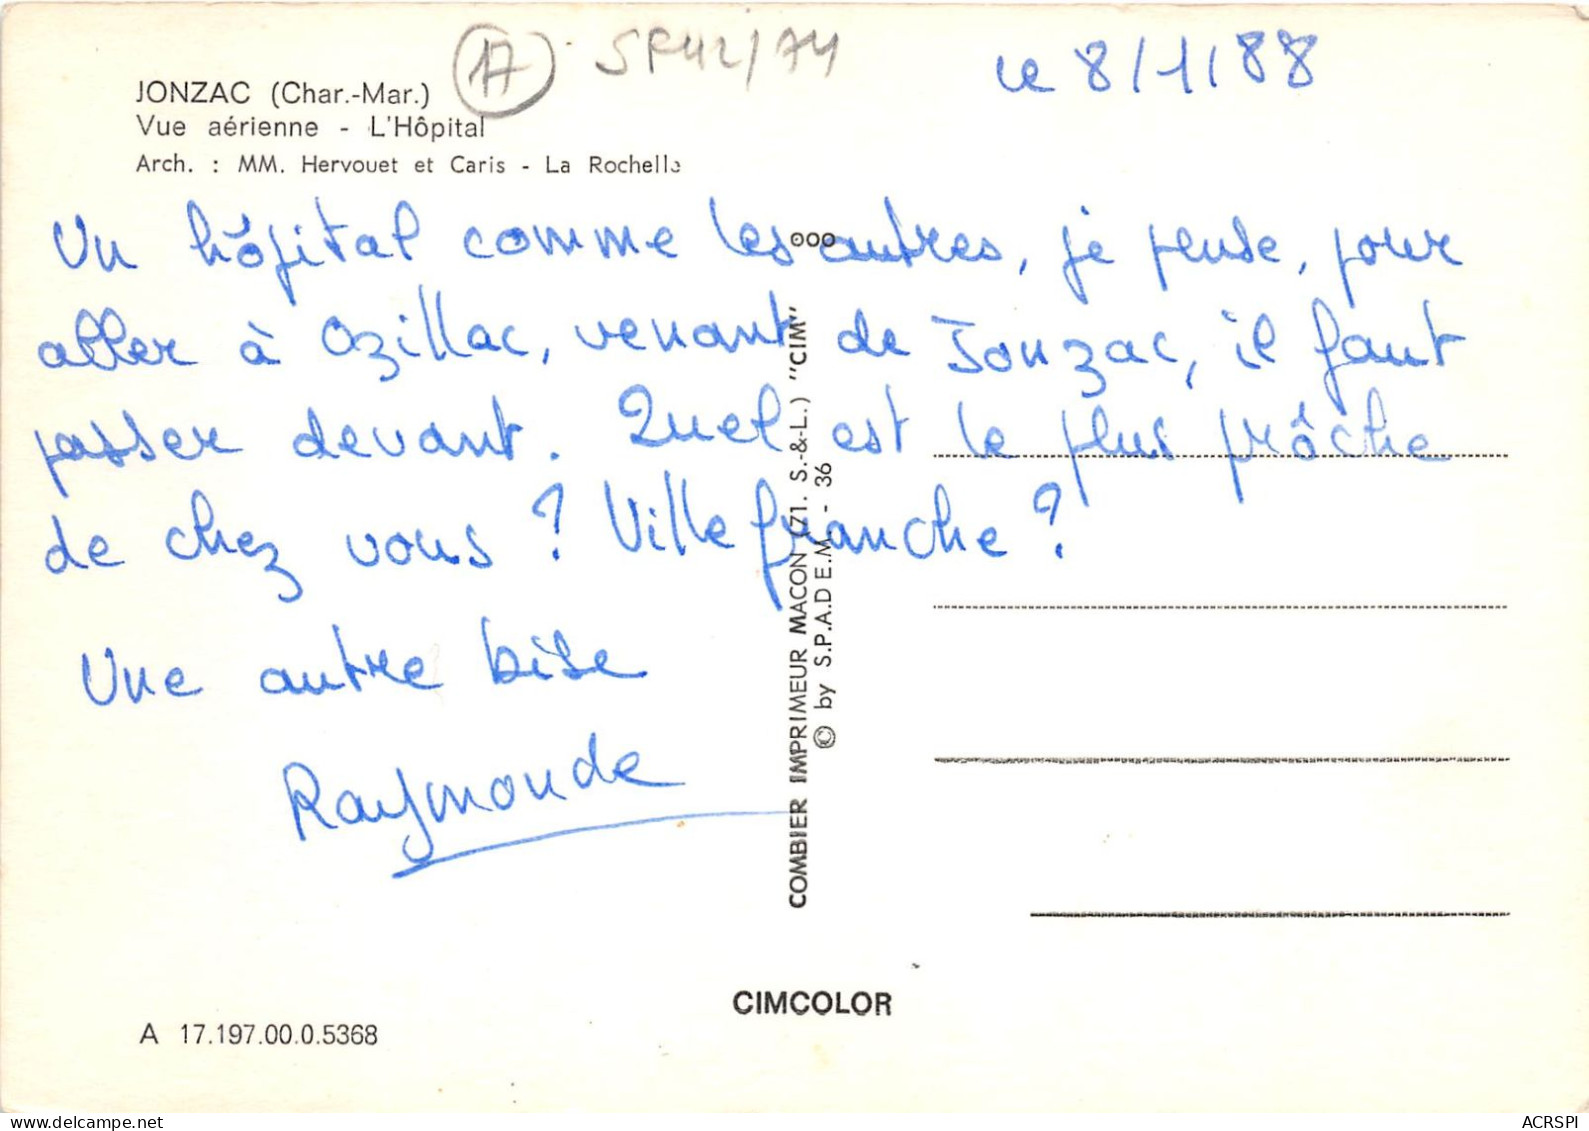 JONZAC (Char.-Mar.)
Vue aérienne - L'Hôpital
Arch. : MM. Hervouet et Caris - La Rochelle
17
le 8/1/88
Un hôpital comme les autres, je pense, pour
aller à Ozillac, venant de Jonzac, il faut
passer devant. Quel est le plus prôche
de chez vous ? Villefranche ?
Une autre bise
Raymonde
COMBIER IMPRIMEUR MACON (71. S.-&-L.) "CIM"
© by S.P.A.D.E.M. - 36
CIMCOLOR
A 17.197.00.0.5368
delcampe.net
ACRSPI